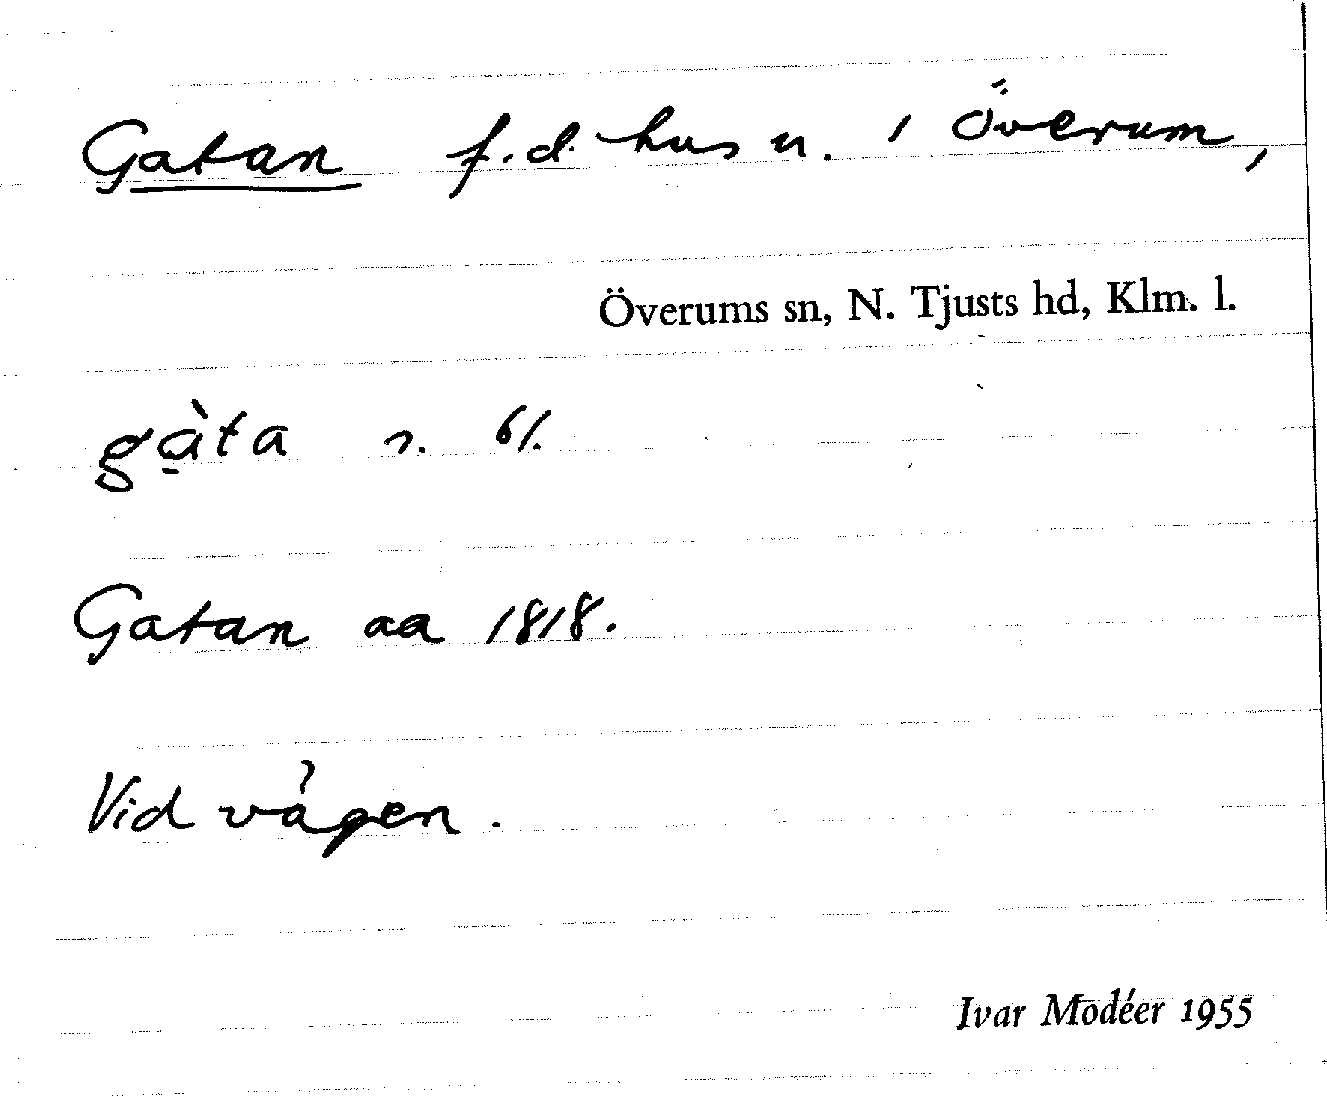 Gatan f.d. hus n. i Överum,
Överums sn, N. Tjusts hd, Klm. l.
gàta n. 6/.
Gatan aa 1818.
Vid vägen.
Ivar Modéer 1955